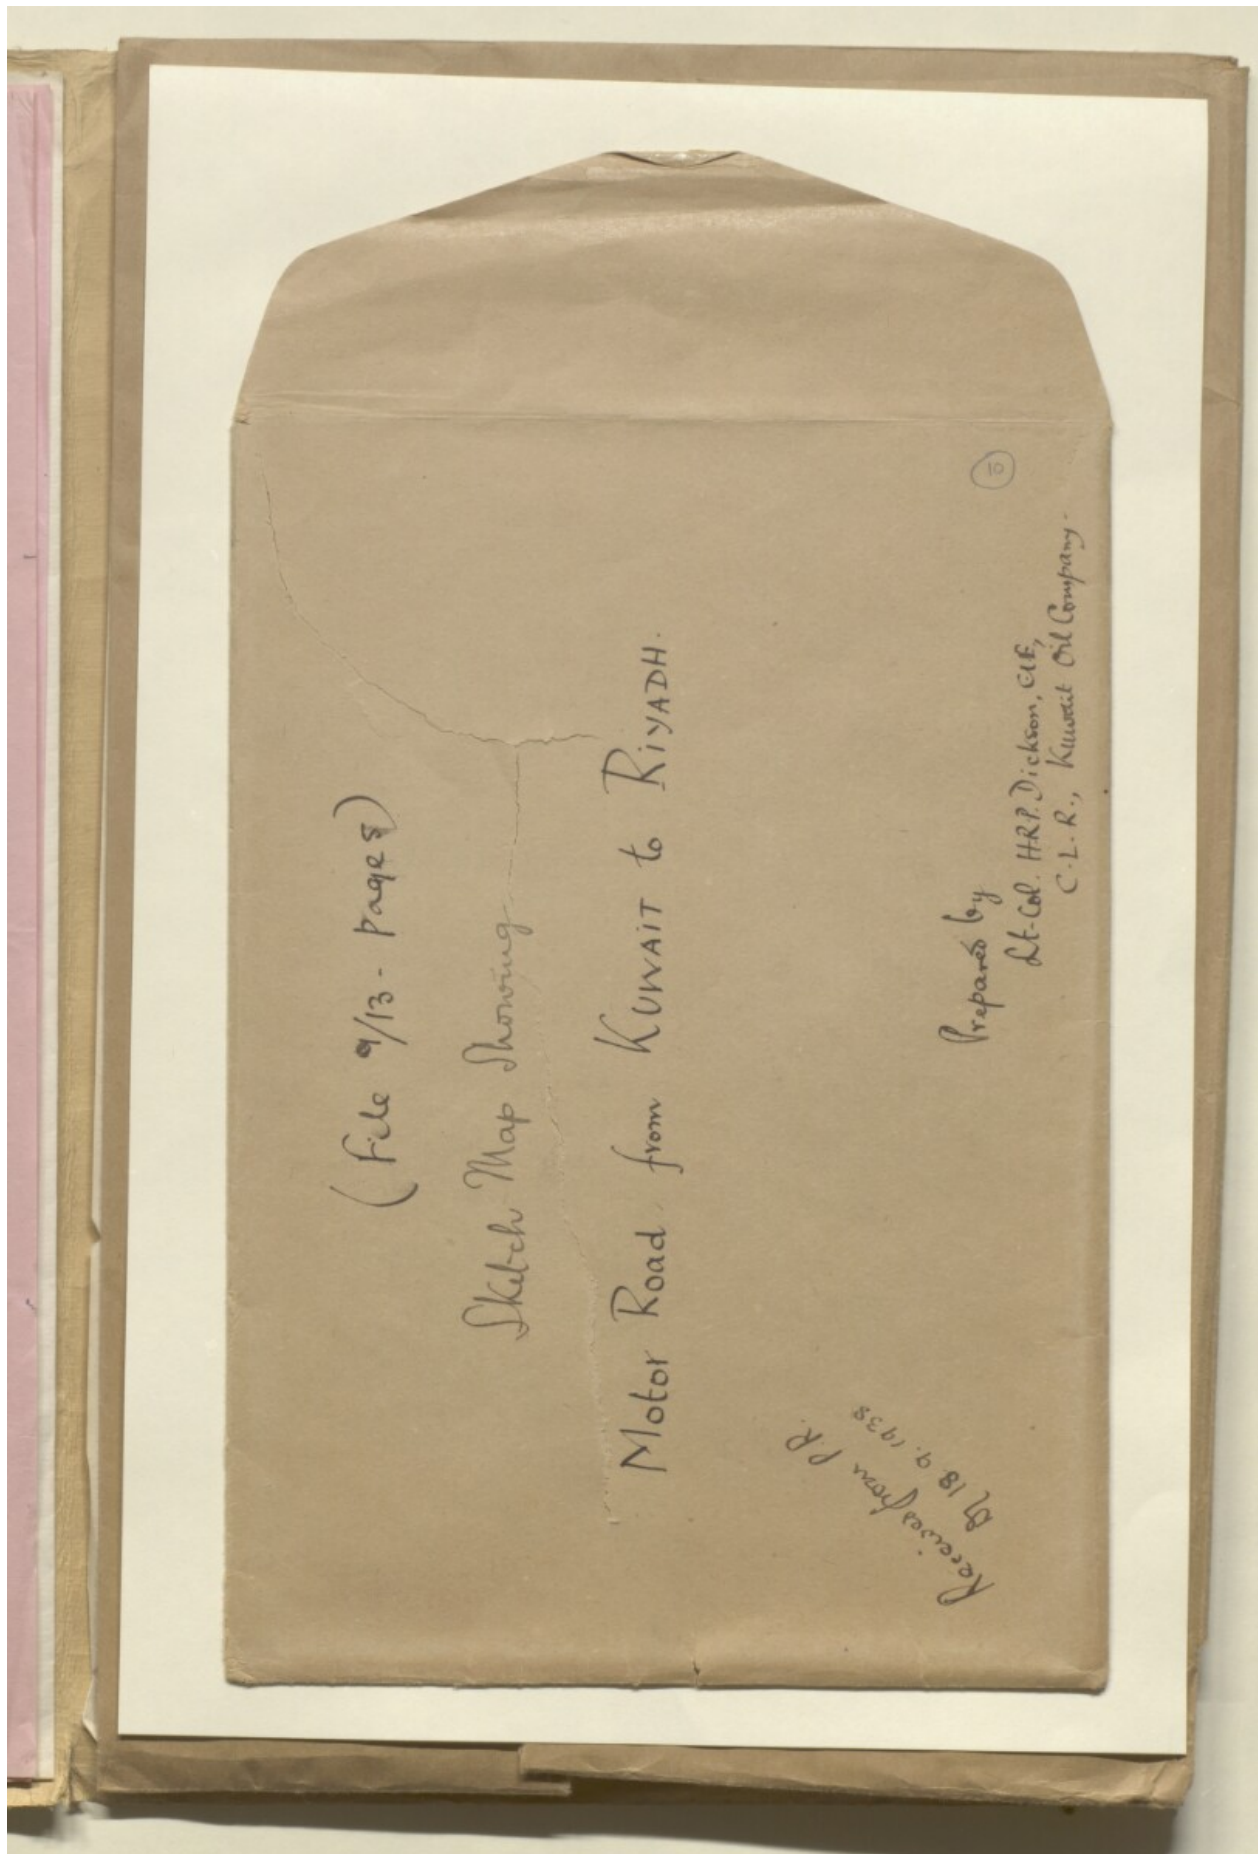 (File 9/13 - pages)
Sketch Map Showing
Motor Road from KUWAIT to RIYADH.
Prepared by
Lt-Col. H.R.P. Dickson, CIE,
C.L.R., Kuwait Oil Company.
Received from P.R.
18.9.1938
10